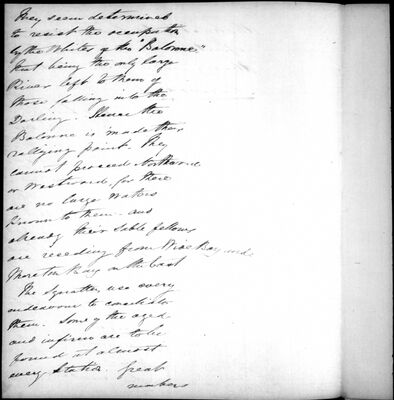 They seem determined
to resist the occupation
by the Whites of the "Balonne"
that being the only large
River left to them of
those falling into the
Darling. Hence the
Balonne is made their
rallying point. They
cannot proceed Northward
or Westward, for there
are no large waters
Known to them and
already their sable fellows
are receding from Wide Bay and
Moreton Bay on the East
The Squatters use every
endeavour to conciliate
them. Some of the aged
and infirm are to be
found at almost
every Station. Great
numbers